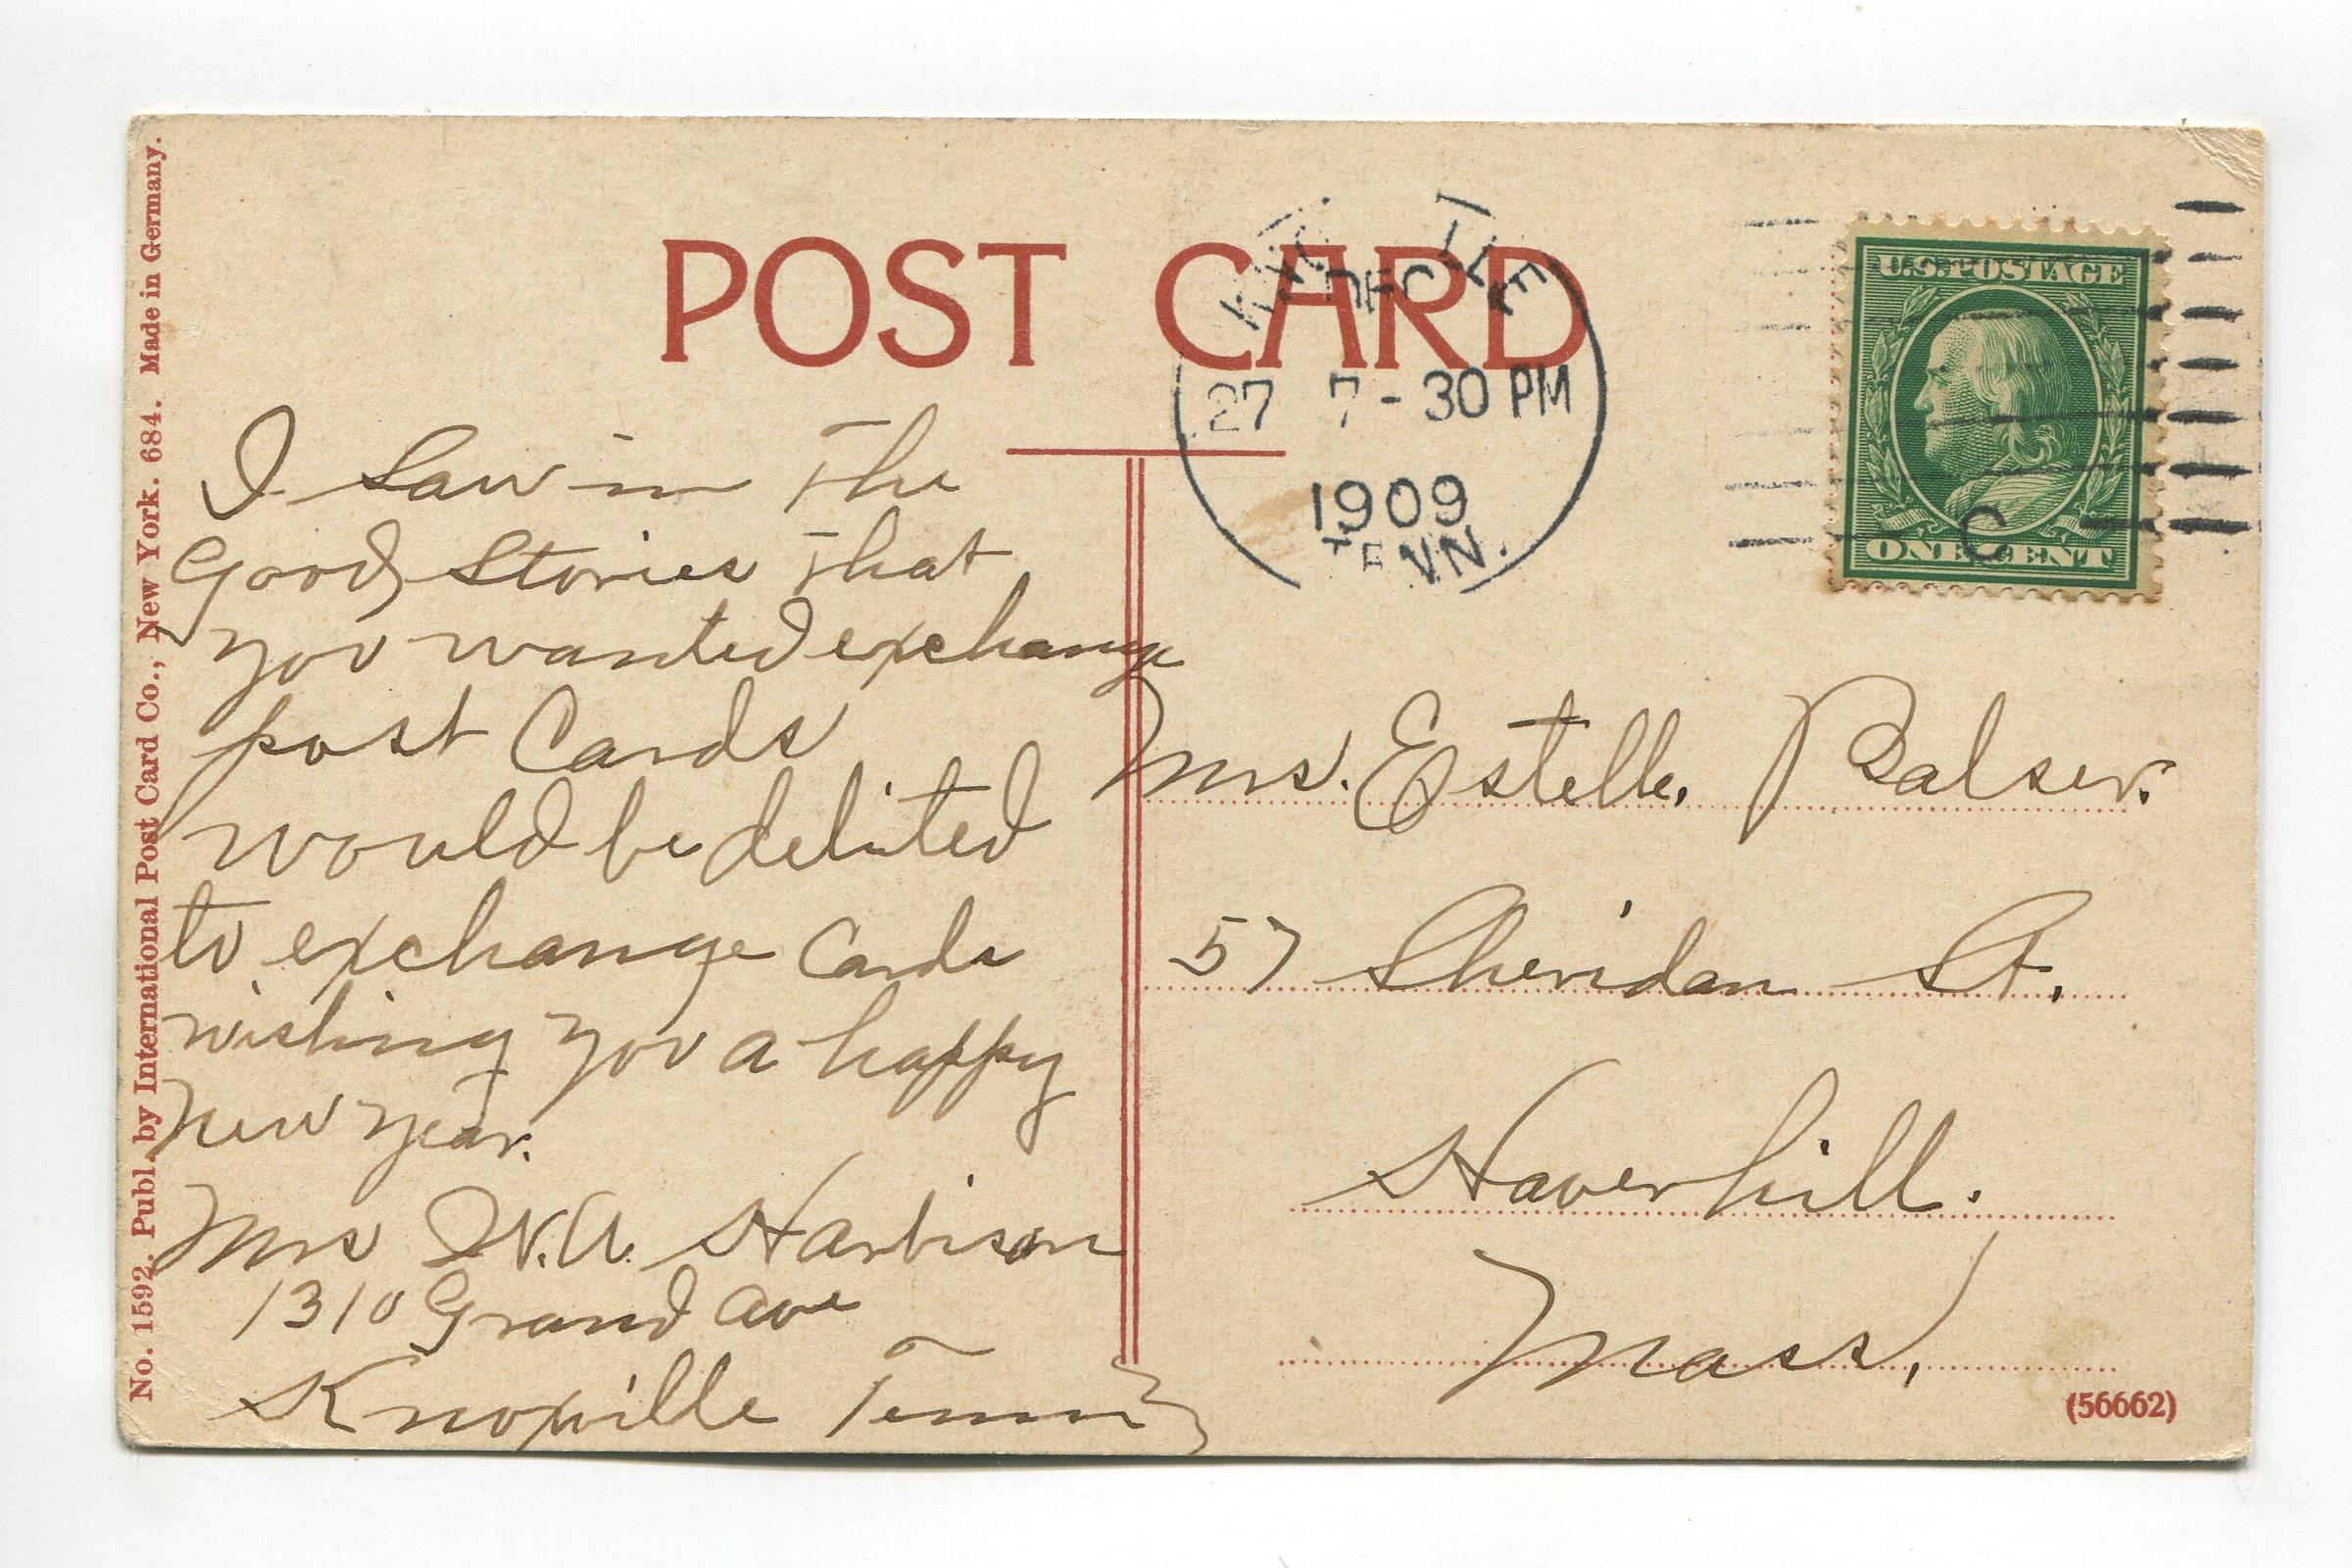 No. 1592. Publ. by International Post Card Co., New York. 684. Made in Germany.
POST CARD
DEC
27 7-30 PM
1909
TENN.
U.S. POSTAGE
ONE CENT
C
I Saw in The
Good Stories That
you wanted exchange
post Cards
would be delited
to exchange Cards
wishing you a happy
New Year.
Mrs W.A. Harbison
1310 Grand Ave
Knoxville Tenn
Mrs. Estelle. Balser.
57 Sheridan St.
Haverhill.
Mass.
(56662)